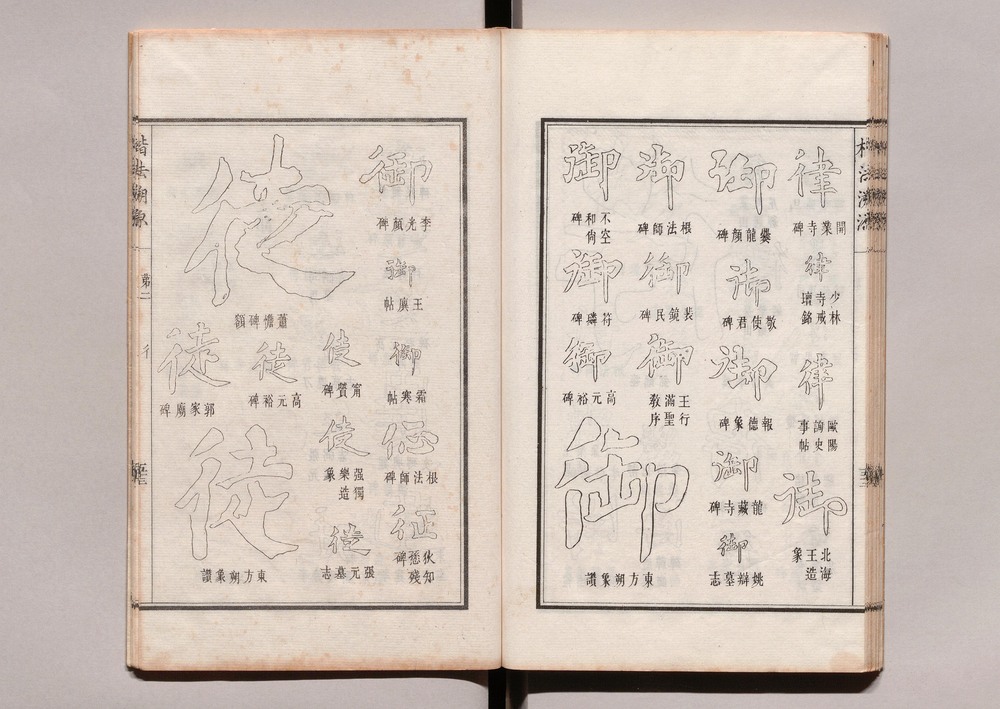 律
開業寺碑
律
少林寺戒壇銘
律
歐陽詢史事帖
御
北海王造象
御
爨龍顏碑
御
敬使君碑
御
報德象碑
御
龍藏寺碑
御
姚辯墓志
御
根法師碑
御
裴鏡民碑
御
王行滿聖教序
御
不空和尚碑
御
符璘碑
御
高元裕碑
御
東方朔象讚
御
李光顏碑
御
王廙帖
御
霜寒帖
征
根法師碑
征
狄知愻殘碑
徒
甯贙碑
徒
强獨樂造象
徒
張元墓志
徒
蕭憺碑額
徒
高元裕碑
徒
郭家廟碑
徒
東方朔象讚
楷法溯源
第二
彳